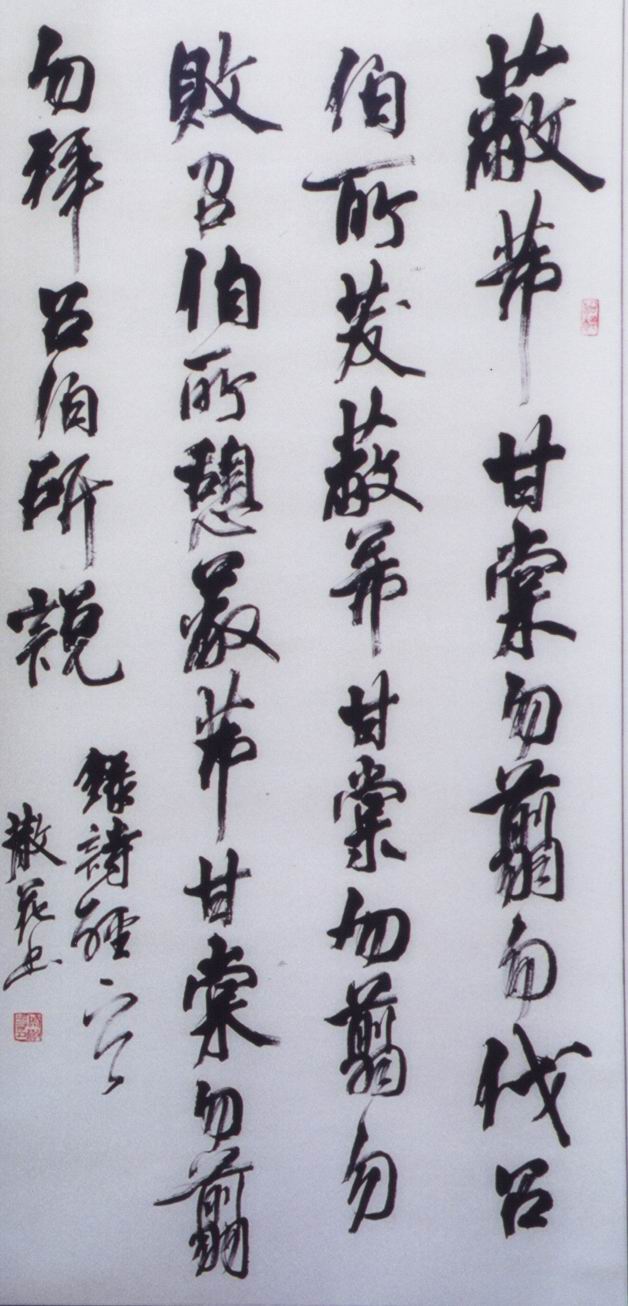 蔽芾甘棠勿翦勿伐召
伯所茇蔽芾甘棠勿翦勿
敗召伯所憩蔽芾甘棠勿翦
勿拜召伯所說
錄詩經
花书